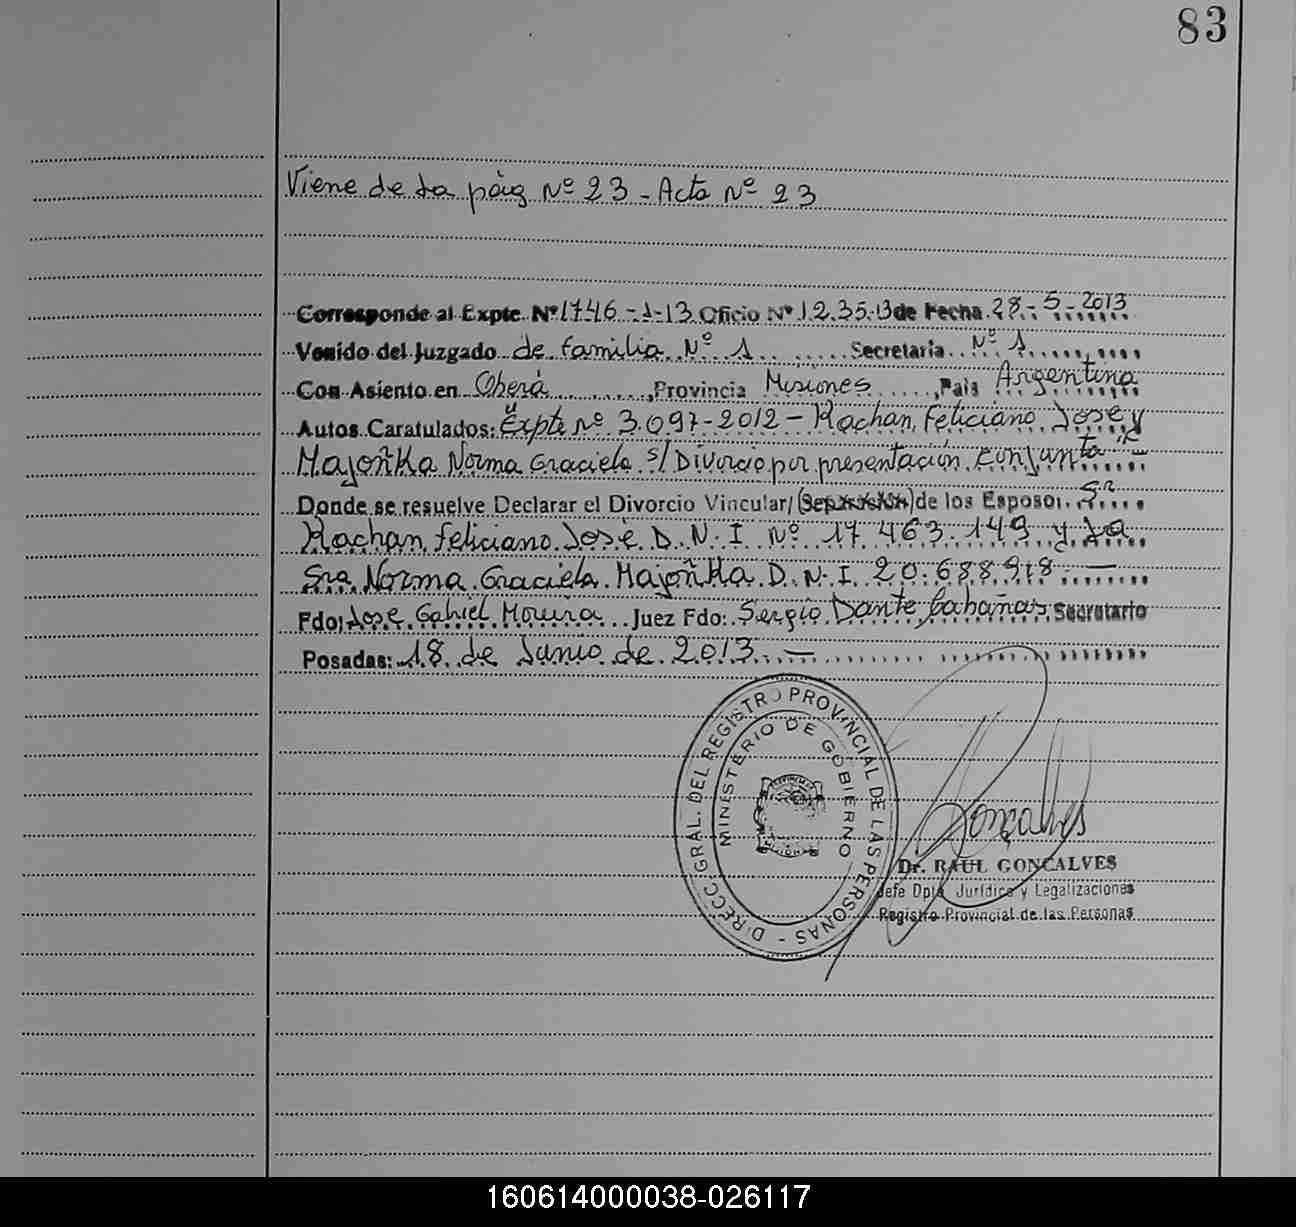 83
Viene de La pág Nº 23 - Acta Nº 23
Corresponde al Expte. Nº 1746-J-13 Oficio Nº 12.35.13 de Fecha 28-5-2013
Venido del Juzgado de familia Nº 1 Secretaria Nº 1
Con Asiento en Oberá, Provincia Misiones, Pais Argentina
Autos Caratulados: "Expte Nº 3.097-2012 - Rachan, Feliciano, José y
Majoñka Norma Graciela s/ Divorcio por presentación conjunta" -
Donde se resuelve Declarar el Divorcio Vincular/ (Separación) de los Esposos. Sr
Rachan, Feliciano. José D.N.I Nº 17.463.149 y La
Sra Norma. Graciela. Majoñka. D.N.I. 20.688.918. —
Fdo: Jose Gabriel Moreira Juez Fdo: Sergio Dante Cabañas Secretario
Posadas: 18 de Junio de 2013. —
DIRECC. GRAL. DEL REGISTRO PROVINCIAL DE LAS PERSONAS -
MINISTERIO DE GOBIERNO
Goncalves
Dr. RAUL GONCALVES
Jefe Dpto. Jurídico y Legalizaciones
Registro Provincial de las Personas
160614000038-026117